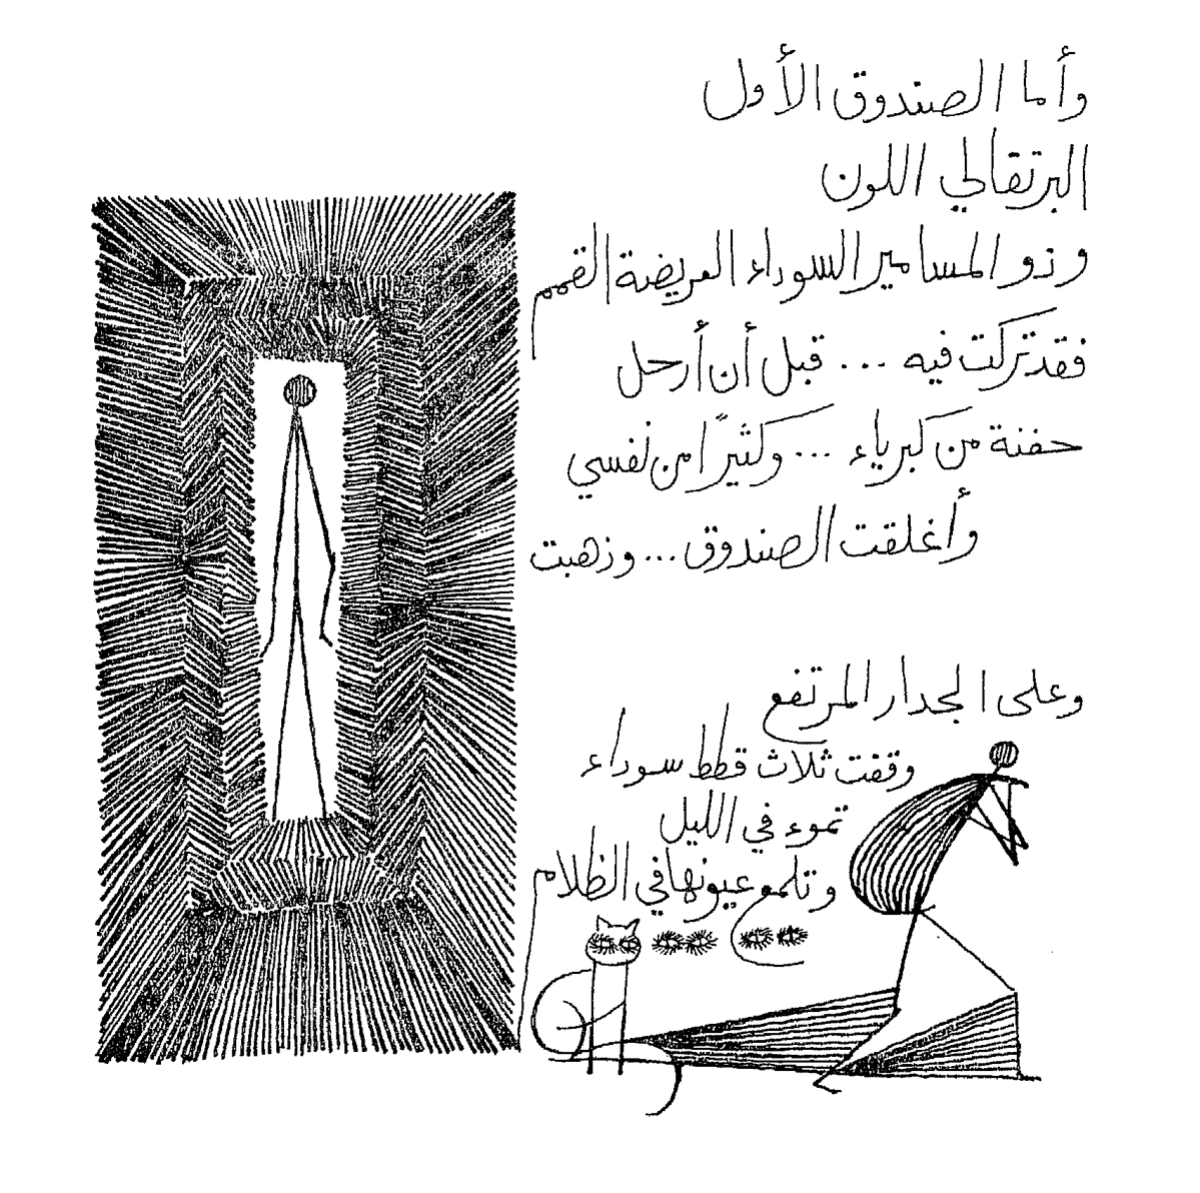 وأما الصندوق الأول
البرتقالي اللون
وذو المسامير السوداء العريضة القمم
فقد تركت فيه ... قبل أن أرحل
حفنة من كبرياء ... وكثيرًا من نفسي
وأغلقت الصندوق ... وذهبت
وعلى الجدار المرتفع
وقفت ثلاث قطط سوداء
تموء في الليل
وتلمع عيونها في الظلام